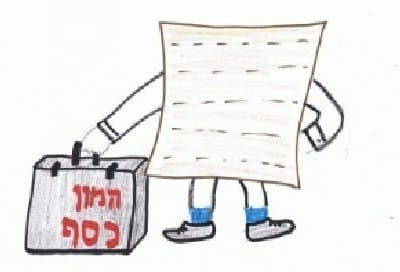 המון
כסף